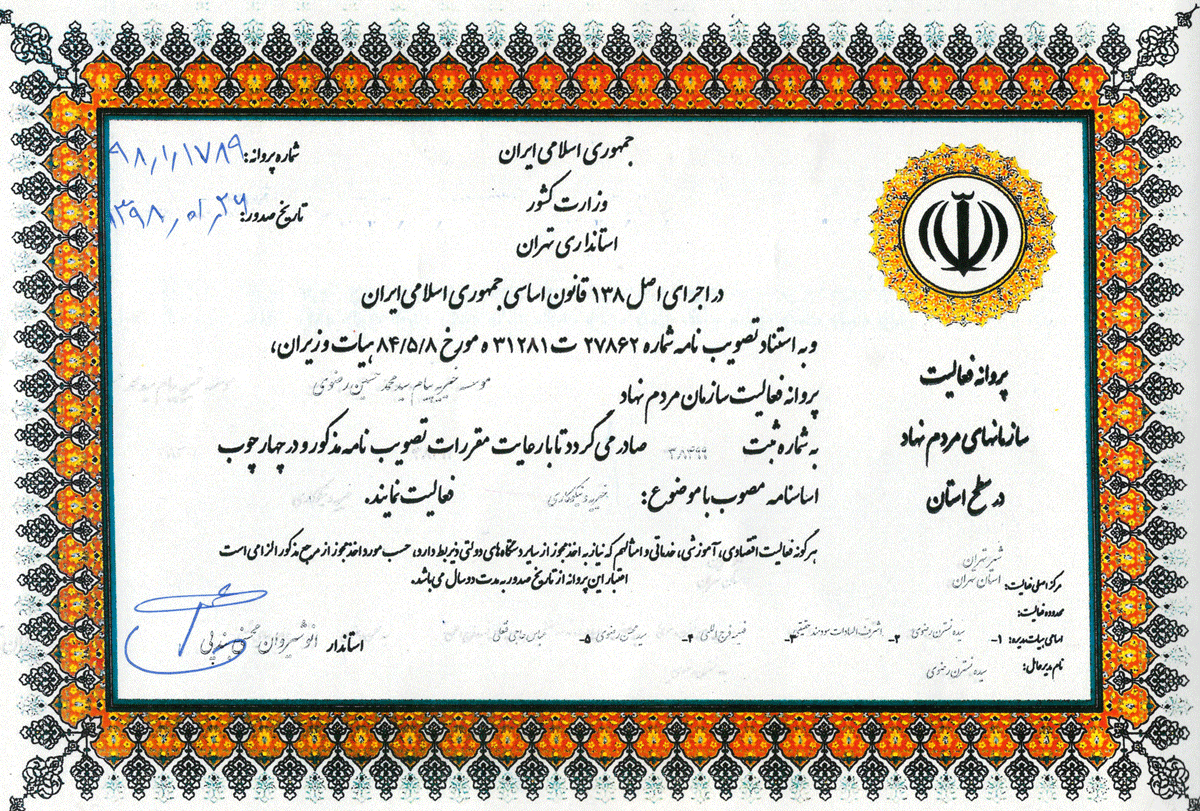 جمهوری اسلامی ایران
وزارت کشور
استانداری تهران
شماره پروانه: ۹۸٫۱٫۱۷۸۹
تاریخ صدور: ۱۳۹۸٫۰۱٫۲۶
پروانه فعالیت
سازمانهای مردم نهاد
در سطح استان
در اجرای اصل ۱۳۸ قانون اساسی جمهوری اسلامی ایران
و به استناد تصویب نامه شماره ۲۷۸۶۲ ت ۳۱۲۸۱ ه مورخ ۸۴/۵/۸ هیات وزیران،
پروانه فعالیت سازمان مردم نهاد موسسه خیریه پیام سید محمد حسین رضوی
به شماره ثبت ۳۸۴۹۹ صادر می گردد تا با رعایت مقررات تصویب نامه مذکور و در چهارچوب
اساسنامه مصوب با موضوع: خیریه و نیکوکاری فعالیت نمایند.
هرگونه فعالیت اقتصادی، آموزشی، خدماتی و امثالهم که نیاز به اخذ مجوز از سایر دستگاه های دولتی ذیربط دارد، حسب مورد اخذ مجوز از مرجع مذکور الزامی است
اعتبار این پروانه از تاریخ صدور به مدت دو سال می باشد.
مرکز اصلی فعالیت: شهر تهران
محدوده فعالیت: استان تهران
اسامی هیات مدیره: ۱- سیده نسترن رضوی ۲- اشرف السادات سودمند حقیقی ۳- ۴- سید محسن رضوی ۵- عباس حاجی نقلی
نام مدیرعامل: سیده نسترن رضوی
استاندار انوشیروان محسنی بندپی